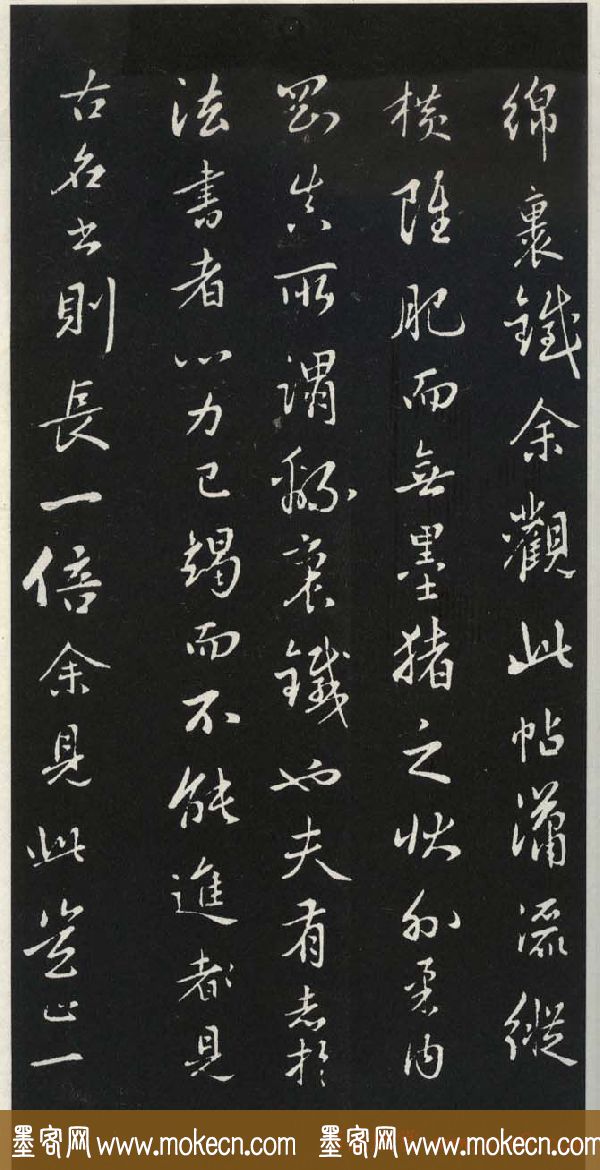 綿裹鐵余觀此帖瀟灑縱
橫雖肥而無墨猪之狀外柔內
剛真所謂綿裹鐵也夫有志於
法書者心力已竭而不能進都見
古名書則長一倍余見此豈止一
墨客网 www.mokecn.com 墨客网 www.mokecn.com